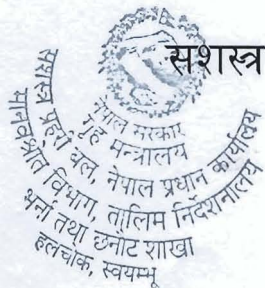 सशस्त्र
नेपाल सरकार
गृह मन्त्रालय
सशस्त्र प्रहरी बल, नेपाल प्रधान कार्यालय
मानवश्रोत विभाग, तालिम निर्देशनालय
भर्ना तथा छनौट शाखा
हलचोक, स्वयम्भू